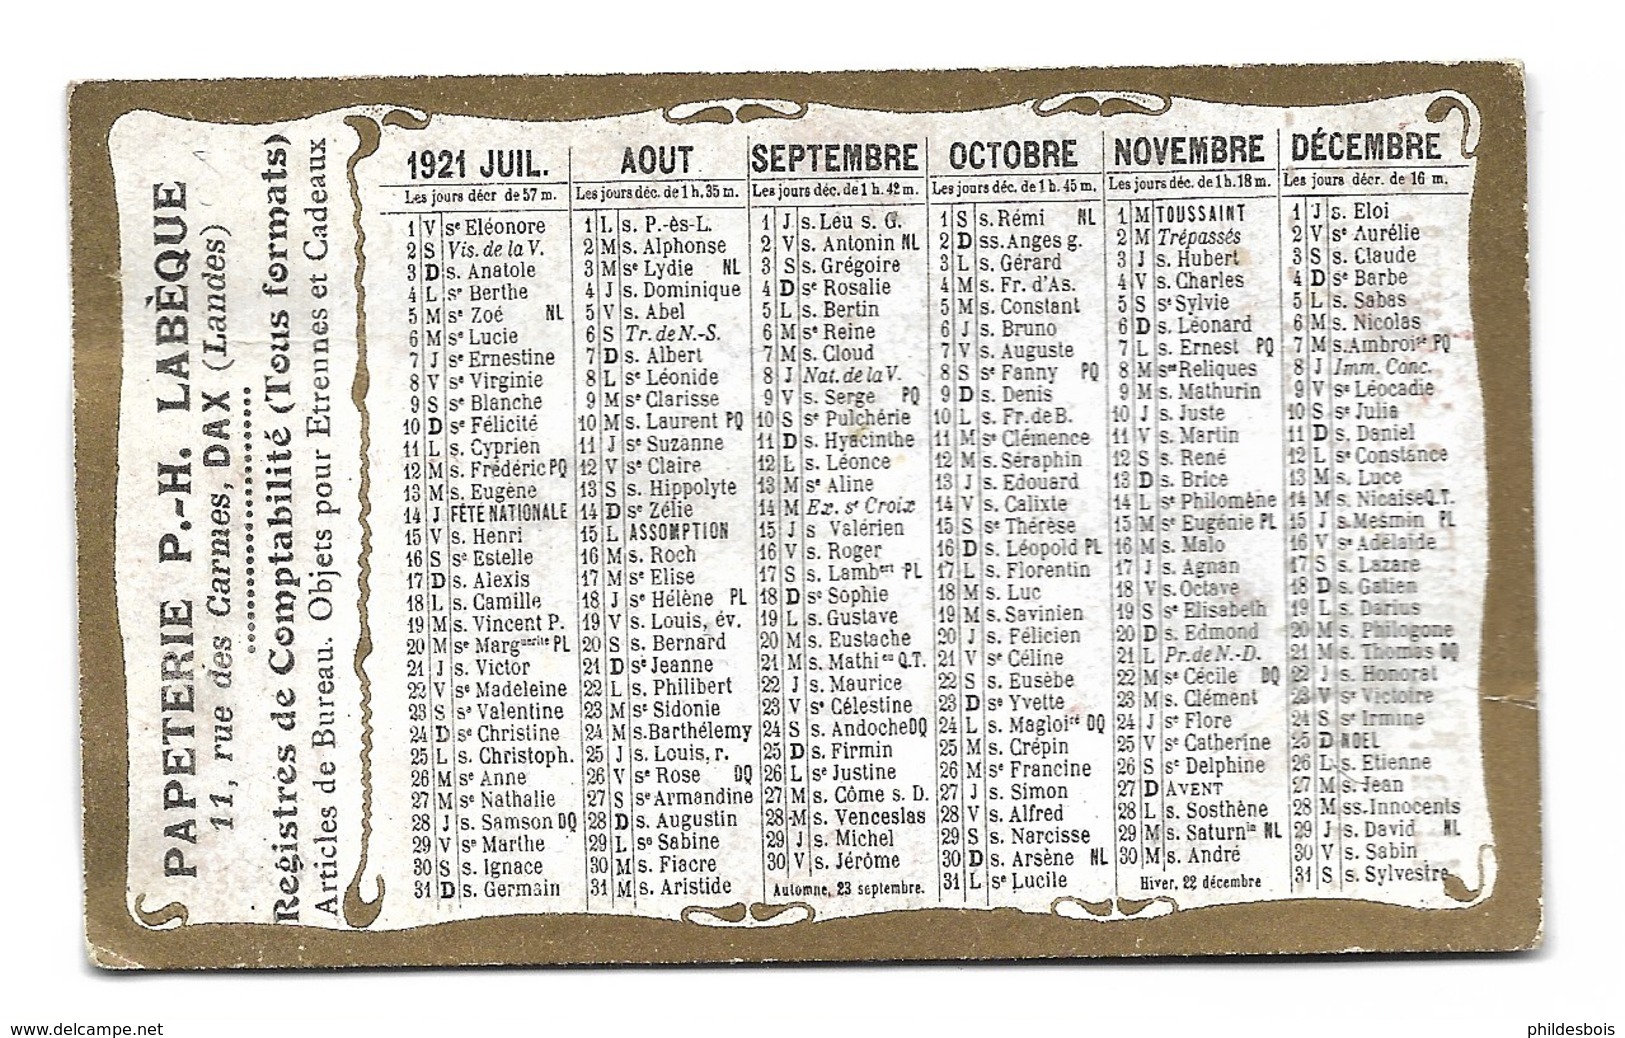 PAPETERIE P.-H. LABÈQUE
11, rue des Carmes, DAX (Landes)
Registres de Comptabilité (Tous formats)
Articles de Bureau. Objets pour Etrennes et Cadeaux
1921 JUIL.
Les jours décr de 57 m.
1 V se Eléonore
2 S Vis. de la V.
3 D s. Anatole
4 L se Berthe
5 M se Zoé NL
6 M se Lucie
7 J se Ernestine
8 V se Virginie
9 S se Blanche
10 D se Félicité
11 L s. Cyprien
12 M s. Frédéric PQ
13 M s. Eugène
14 J FÊTE NATIONALE
15 V s. Henri
16 S se Estelle
17 D s. Alexis
18 L s. Camille
19 M s. Vincent P.
20 M se Marguerite PL
21 J s. Victor
22 V se Madeleine
23 S se Valentine
24 D se Christine
25 L s. Christoph.
26 M se Anne
27 M se Nathalie
28 J s. Samson DQ
29 V se Marthe
30 S s. Ignace
31 D s. Germain
AOUT
Les jours déc. de 1 h. 35 m.
1 L s. P.-ès-L.
2 M s. Alphonse
3 M se Lydie NL
4 J s. Dominique
5 V s. Abel
6 S Tr. de N.-S.
7 D s. Albert
8 L se Léonide
9 M se Clarisse
10 M s. Laurent PQ
11 J se Suzanne
12 V se Claire
13 S s. Hippolyte
14 D se Zélie
15 L ASSOMPTION
16 M s. Roch
17 M se Elise
18 J se Hélène PL
19 V s. Louis, év.
20 S s. Bernard
21 D se Jeanne
22 L s. Philibert
23 M se Sidonie
24 M s. Barthélemy
25 J s. Louis, r.
26 V se Rose DQ
27 S se Armandine
28 D s. Augustin
29 L se Sabine
30 M s. Fiacre
31 M s. Aristide
SEPTEMBRE
Les jours déc. de 1 h. 42 m.
1 J s. Leu s. G.
2 V s. Antonin NL
3 S s. Grégoire
4 D se Rosalie
5 L s. Bertin
6 M se Reine
7 M s. Cloud
8 J Nat. de la V.
9 V s. Serge PQ
10 S se Pulchérie
11 D s. Hyacinthe
12 L s. Léonce
13 M se Aline
14 M Ex. se Croix
15 J s Valérien
16 V s. Roger
17 S s. Lambert PL
18 D se Sophie
19 L s. Gustave
20 M s. Eustache
21 M s. Mathieu Q.T.
22 J s. Maurice
23 V se Célestine
24 S s. Andoche DQ
25 D s. Firmin
26 L se Justine
27 M s. Côme s. D.
28 M s. Venceslas
29 J s. Michel
30 V s. Jérôme
Automne, 23 septembre.
OCTOBRE
Les jours déc. de 1 h. 45 m.
1 S s. Rémi NL
2 D ss. Anges g.
3 L s. Gérard
4 M s. Fr. d'As.
5 M s. Constant
6 J s. Bruno
7 V s. Auguste
8 S se Fanny PQ
9 D s. Denis
10 L s. Fr. de B.
11 M se Clémence
12 M s. Séraphin
13 J s. Edouard
14 V s. Calixte
15 S se Thérèse
16 D s. Léopold PL
17 L s. Florentin
18 M s. Luc
19 M s. Savinien
20 J s. Félicien
21 V se Céline
22 S s. Eusèbe
23 D se Yvette
24 L s. Magloire DQ
25 M s. Crépin
26 M se Francine
27 J s. Simon
28 V s. Alfred
29 S s. Narcisse
30 D s. Arsène NL
31 L se Lucile
NOVEMBRE
Les jours déc. de 1 h. 18 m.
1 M TOUSSAINT
2 M Trépassés
3 J s. Hubert
4 V s. Charles
5 S se Sylvie
6 D s. Léonard
7 L s. Ernest PQ
8 M ses Reliques
9 M s. Mathurin
10 J s. Juste
11 V s. Martin
12 S s. René
13 D s. Brice
14 L se Philomène
15 M se Eugénie PL
16 M s. Malo
17 J s. Agnan
18 V s. Octave
19 S se Elisabeth
20 D s. Edmond
21 L Pr. de N.-D.
22 M se Cécile DQ
23 M s. Clément
24 J se Flore
25 V se Catherine
26 S se Delphine
27 D AVENT
28 L s. Sosthène
29 M s. Saturnin NL
30 M s. André
Hiver, 22 décembre
DÉCEMBRE
Les jours décr. de 16 m.
1 J s. Eloi
2 V se Aurélie
3 S s. Claude
4 D se Barbe
5 L s. Sabas
6 M s. Nicolas
7 M s. Ambroise PQ
8 J Imm. Conc.
9 V se Léocadie
10 S se Julie
11 D s. Daniel
12 L se Constance
13 M s. Luce
14 M s. Nicaise Q.T.
15 J s. Mesmin PL
16 V se Adélaïde
17 S s. Lazare
18 D s. Gatien
19 L s. Darius
20 M s. Philogone
21 M s. Thomas DQ
22 J s. Honorat
23 V se Victoire
24 S se Irmine
25 D NOEL
26 L s. Etienne
27 M s. Jean
28 M ss. Innocents
29 J s. David NL
30 V s. Sabin
31 S s. Sylvestre
www.delcampe.net
phildesbois